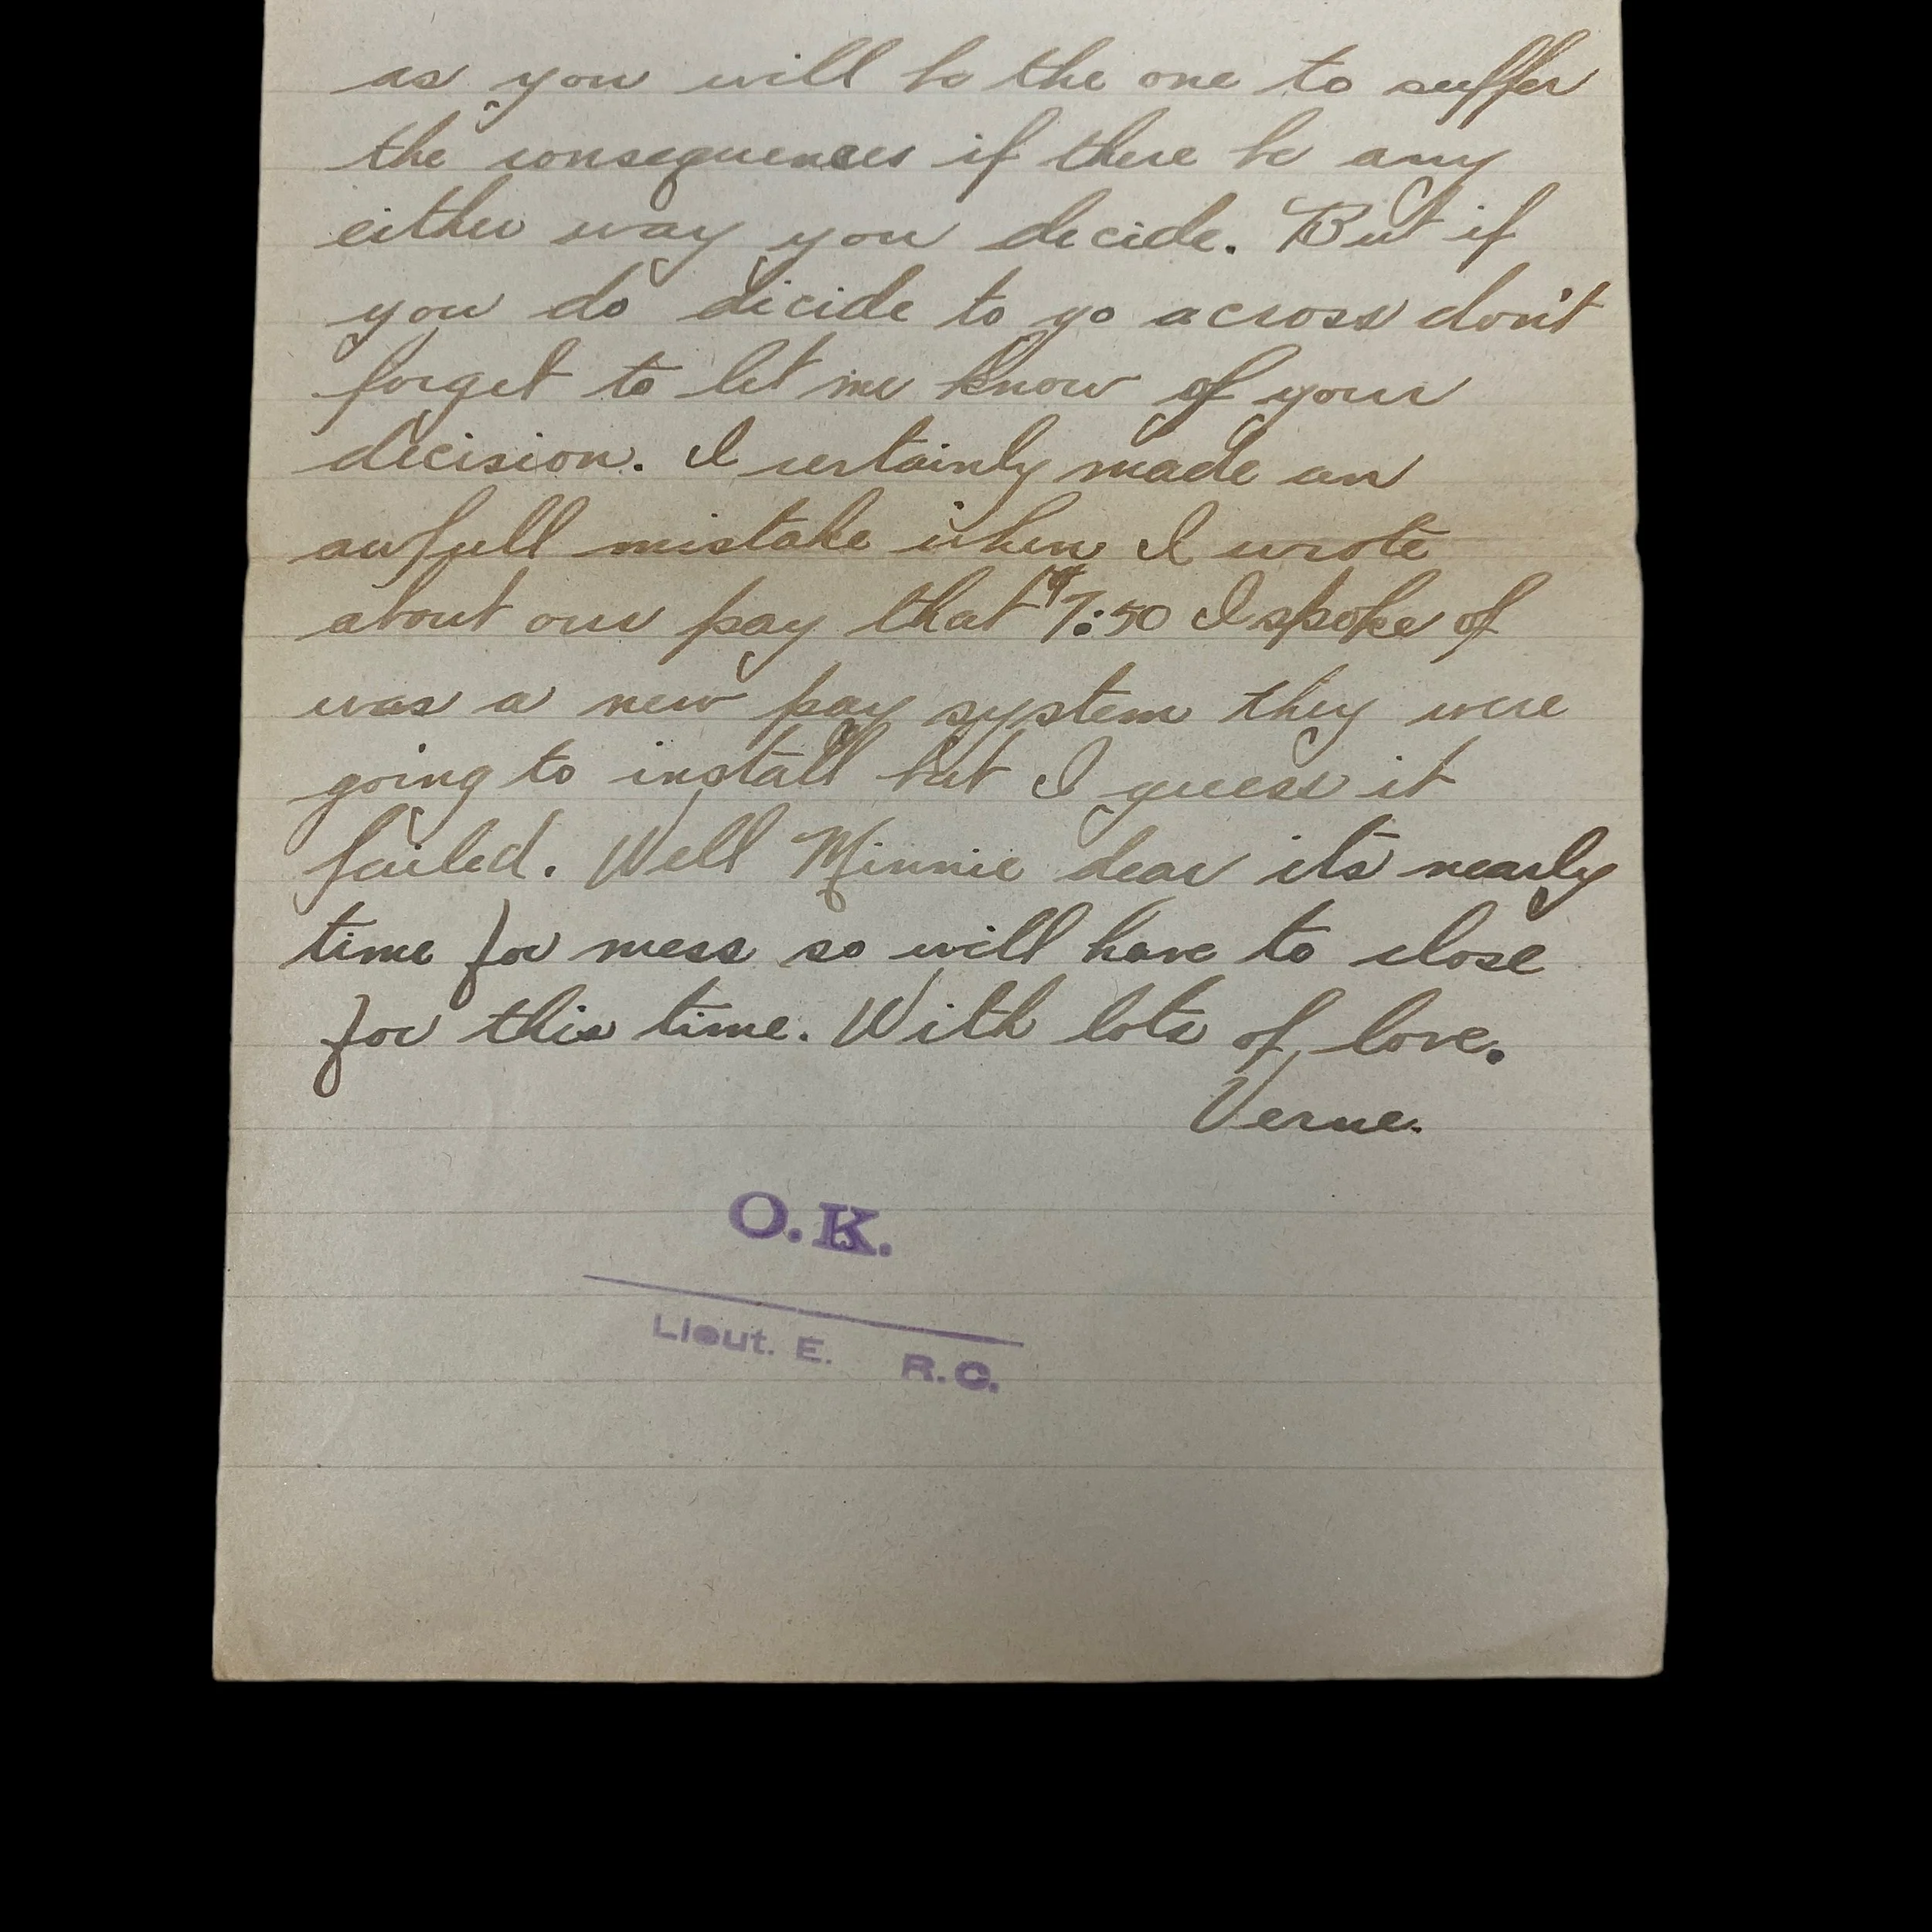 as you will be the one to suffer
the consequences if there be any
either way you decide. But if
you do dicide to go across don't
forget to let me know of your
decision. I certainly made an
awfull mistake when I wrote
about our pay that $7:50 I spoke of
was a new pay system they were
going to install but I guess it
failed. Well Minnie dear its nearly
time for mess so will have to close
for this time. With lots of love.
Verne.
O.K.
Lieut. E. R.C.